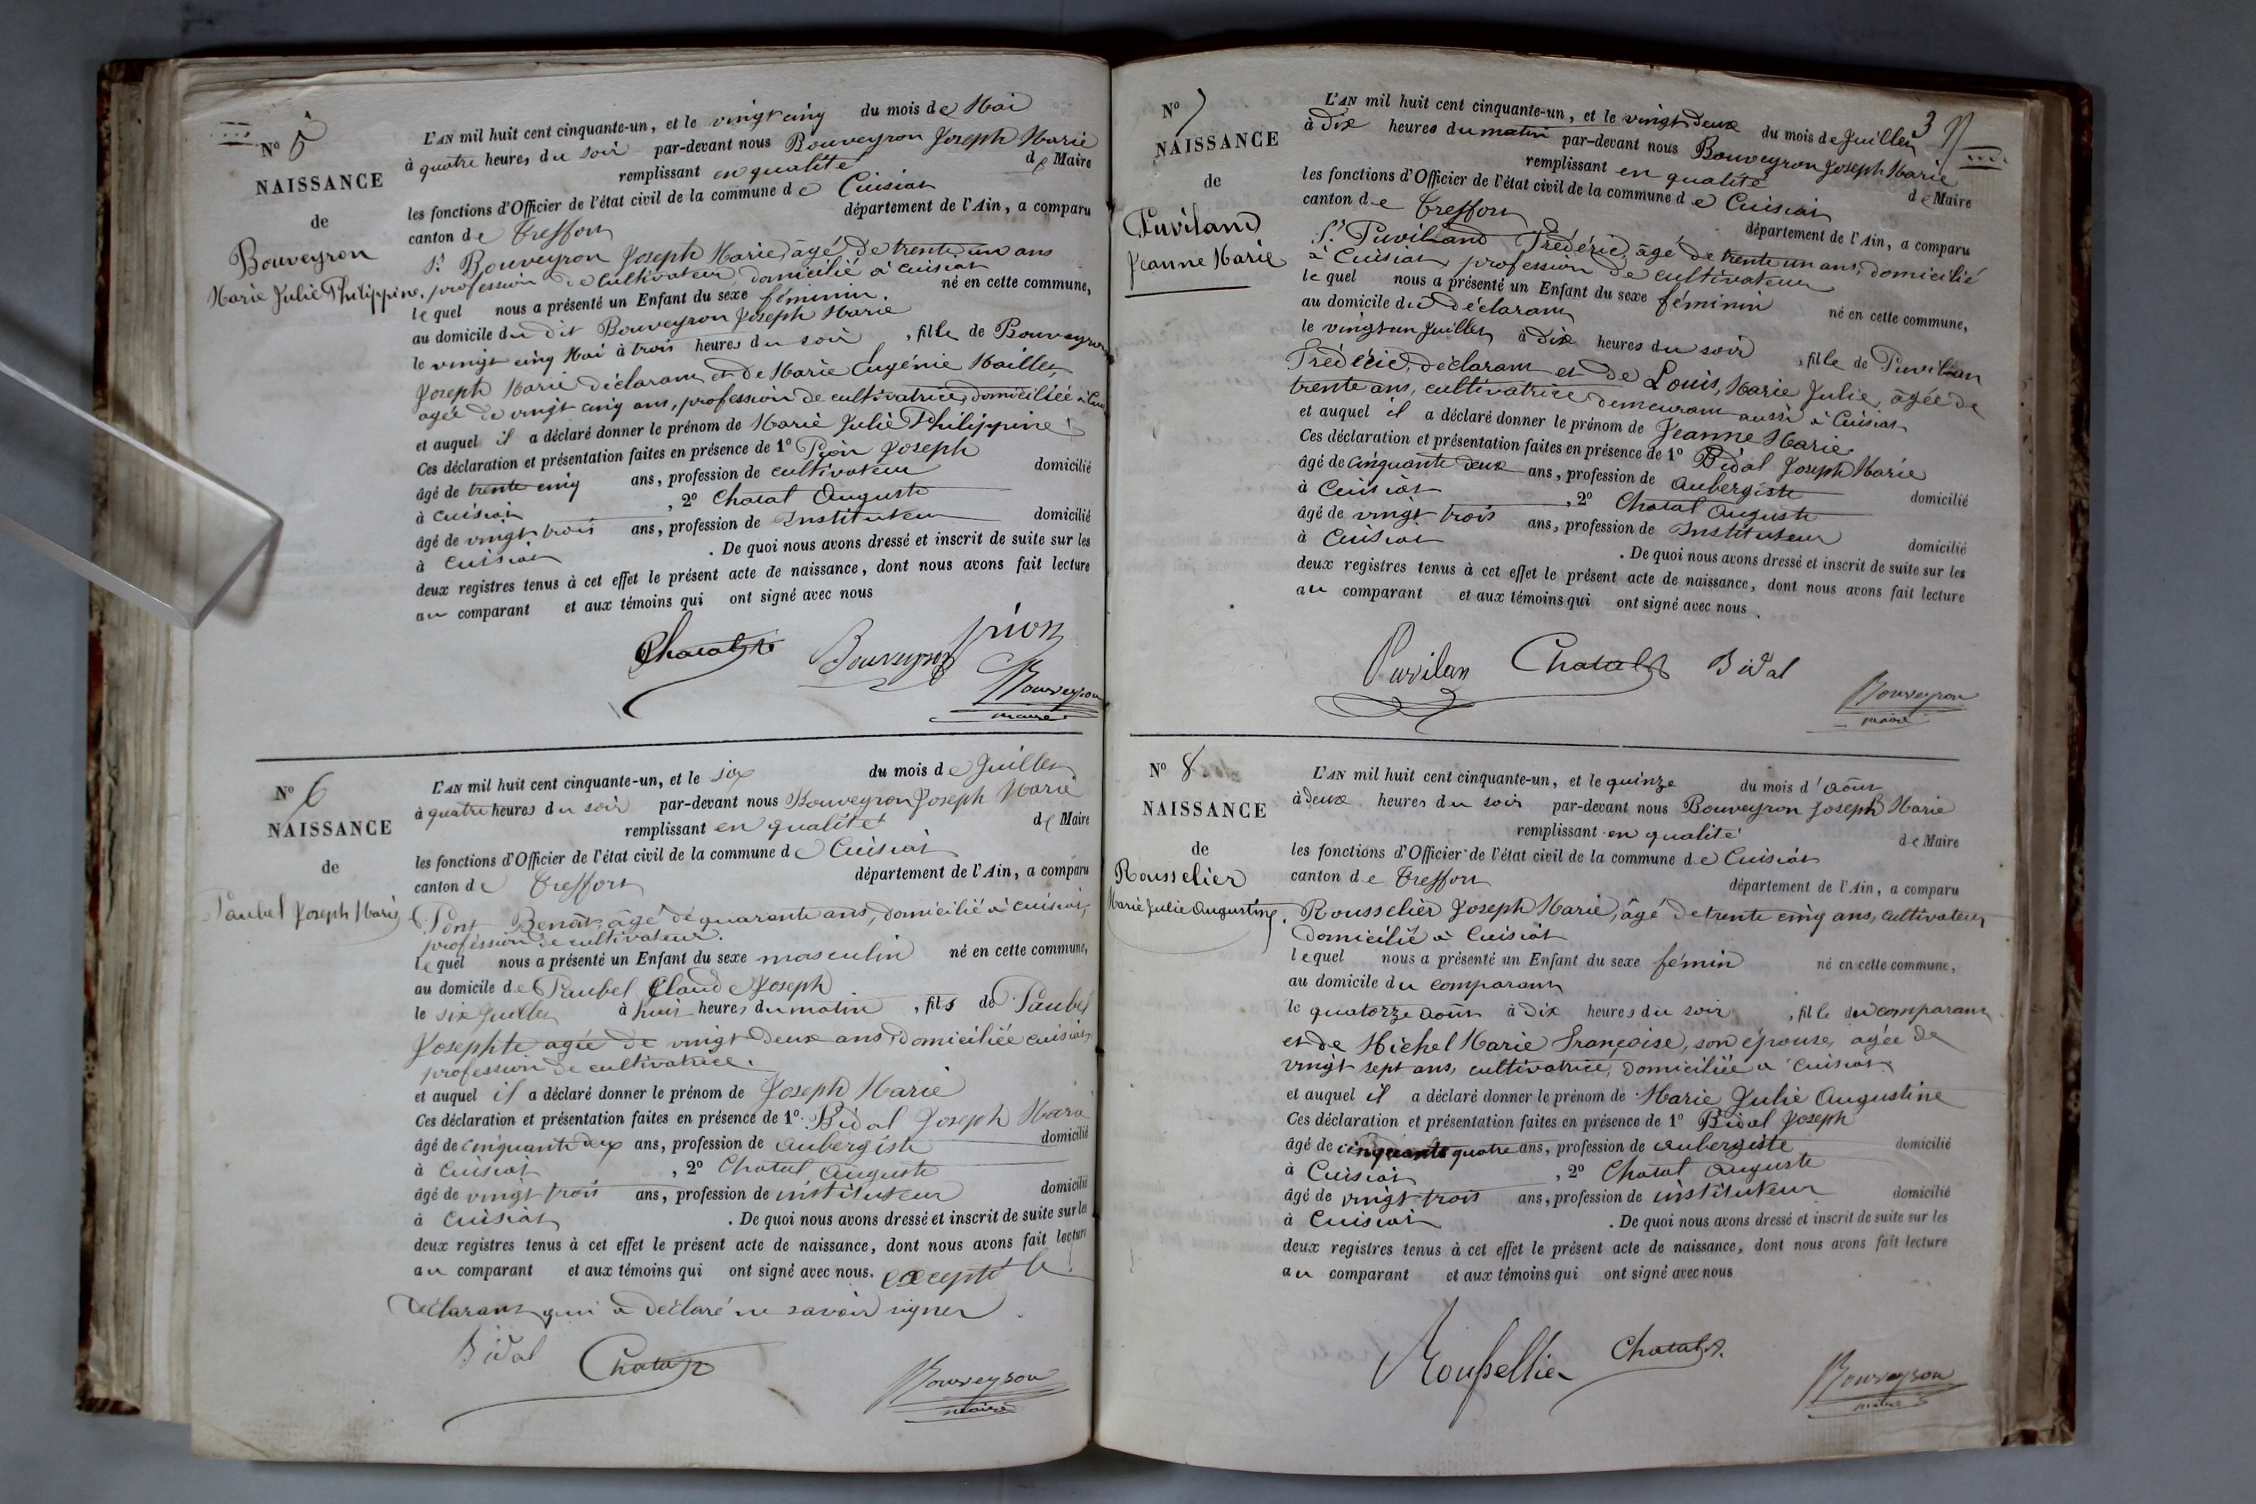 N° 5
NAISSANCE
de
Bouveyron
Marie Julie Philippine.
L'AN mil huit cent cinquante-un, et le vingt cinq du mois de Mai
à quatre heures du soir par-devant nous Bouveyron Joseph Marie
remplissant en qualité de Maire
les fonctions d'Officier de l'état civil de la commune de Cuisiat
canton de Treffort département de l'Ain, a comparu
Sr Bouveyron Joseph Marie, âgé de trente un ans
profession de cultivateur, domicilié à cuisiat
lequel nous a présenté un Enfant du sexe féminin. né en cette commune,
au domicile du dit Bouveyron Joseph Marie
le vingt cinq Mai à trois heures du soir, fille de Bouveyron
Joseph Marie déclarant et de Marie Eugénie Maillet
agée de vingt cinq ans, profession de cultivatrice, domiciliée à
et auquel il a déclaré donner le prénom de Marie Julie Philippine
Ces déclaration et présentation faites en présence de 1° Pion Joseph
âgé de trente cinq ans, profession de cultivateur domicilié
à cuisiat, 2° Chatal Auguste
âgé de vingt trois ans, profession de Instituteur domicilié
à Cuisiat. De quoi nous avons dressé et inscrit de suite sur les
deux registres tenus à cet effet le présent acte de naissance, dont nous avons fait lecture
au comparant et aux témoins qui ont signé avec nous
Chatal Bouveyron Pion
Bouveyron
maire
N° 6
NAISSANCE
de
Paubel Joseph Marie
L'AN mil huit cent cinquante-un, et le six du mois de Juillet
à quatre heures du soir par-devant nous Bouveyron Joseph Marie
remplissant en qualité de Maire
les fonctions d'Officier de l'état civil de la commune de Cuisiat
canton de Treffort département de l'Ain, a comparu
Pont Benoît, âgé de quarante ans, domicilié à cuisiat,
profession de cultivateur.
lequel nous a présenté un Enfant du sexe masculin né en cette commune,
au domicile de Paubel Claude Joseph
le six Juillet à huit heures du matin, fils de Paubel
Josephte agée de vingt deux ans, domiciliée cuisiat,
profession de cultivatrice.
et auquel il a déclaré donner le prénom de Joseph Marie
Ces déclaration et présentation faites en présence de 1° Bidal Joseph Marie
âgé de cinquante deux ans, profession de aubergiste domicilié
à Cuisiat, 2° Chatal Auguste
âgé de vingt trois ans, profession de instituteur domicilié
à Cuisiat. De quoi nous avons dressé et inscrit de suite sur les
deux registres tenus à cet effet le présent acte de naissance, dont nous avons fait lecture
au comparant et aux témoins qui ont signé avec nous. excepté le
déclarant qui a déclaré ne savoir signer.
Bidal Chatal Bouveyron
maire
3
N° 7
NAISSANCE
de
Puviland
Jeanne Marie
L'AN mil huit cent cinquante-un, et le vingt deux du mois de Juillet
à dix heures du matin par-devant nous Bouveyron Joseph Marie
remplissant en qualité de Maire
les fonctions d'Officier de l'état civil de la commune de Cuisiat
canton de Treffort département de l'Ain, a comparu
Sr Puviland Frédéric, âgé de trente un ans, domicilié
à Cuisiat, profession de cultivateur
lequel nous a présenté un Enfant du sexe féminin né en cette commune,
au domicile du déclarant
le vingt un Juillet à dix heures du soir, fille de Puvilan
Frédéric, déclarant et de Louis, Marie Julie, âgée de
trente ans, cultivatrice demeurant aussi à Cuisiat
et auquel il a déclaré donner le prénom de Jeanne Marie
Ces déclaration et présentation faites en présence de 1° Bidal Joseph Marie
âgé de cinquante deux ans, profession de Aubergiste domicilié
à Cuisiat, 2° Chatal Auguste
âgé de vingt trois ans, profession de Instituteur domicilié
à Cuisiat. De quoi nous avons dressé et inscrit de suite sur les
deux registres tenus à cet effet le présent acte de naissance, dont nous avons fait lecture
au comparant et aux témoins qui ont signé avec nous.
Puvilan Chatal Bidal
Bouveyron
maire
N° 8
NAISSANCE
de
Rousselier
Marie Julie Augustine.
L'AN mil huit cent cinquante-un, et le quinze du mois d'août
à deux heures du soir par-devant nous Bouveyron Joseph Marie
remplissant en qualité de Maire
les fonctions d'Officier de l'état civil de la commune de Cuisiat
canton de Treffort département de l'Ain, a comparu
Rousselier Joseph Marie, âgé de trente cinq ans, cultivateur
domicilié à Cuisiat
lequel nous a présenté un Enfant du sexe fémin né en cette commune,
au domicile du comparant
le quatorze août à dix heures du soir, fille du comparant
et de Michel Marie Françoise, son épouse, agée de
vingt sept ans, cultivatrice, domiciliée à Cuisiat
et auquel il a déclaré donner le prénom de Marie Julie Augustine
Ces déclaration et présentation faites en présence de 1° Bidal Joseph
âgé de cinquante quatre ans, profession de aubergiste domicilié
à Cuisiat, 2° Chatal Auguste
âgé de vingt trois ans, profession de instituteur domicilié
à Cuisiat. De quoi nous avons dressé et inscrit de suite sur les
deux registres tenus à cet effet le présent acte de naissance, dont nous avons fait lecture
au comparant et aux témoins qui ont signé avec nous
Rousellier Chatal Bouveyron
maire